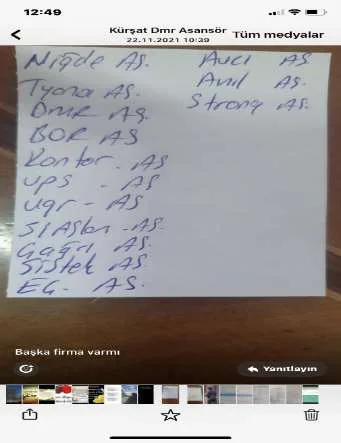 12:49
Kürşat Dmr Asansör
22.11.2021 10:39
Tüm medyalar
Niğde AS.
Tyana AS.
Dmr AS.
BOR AS
Kontor. AS
UPS - AS
Ugr - AS
S/Aslan - AS.
Çağrı AS.
Sistek AS.
EG. AS.
Avcı AS
Anıl AS.
Strong AS.
Başka firma varmı
Yanıtlayın